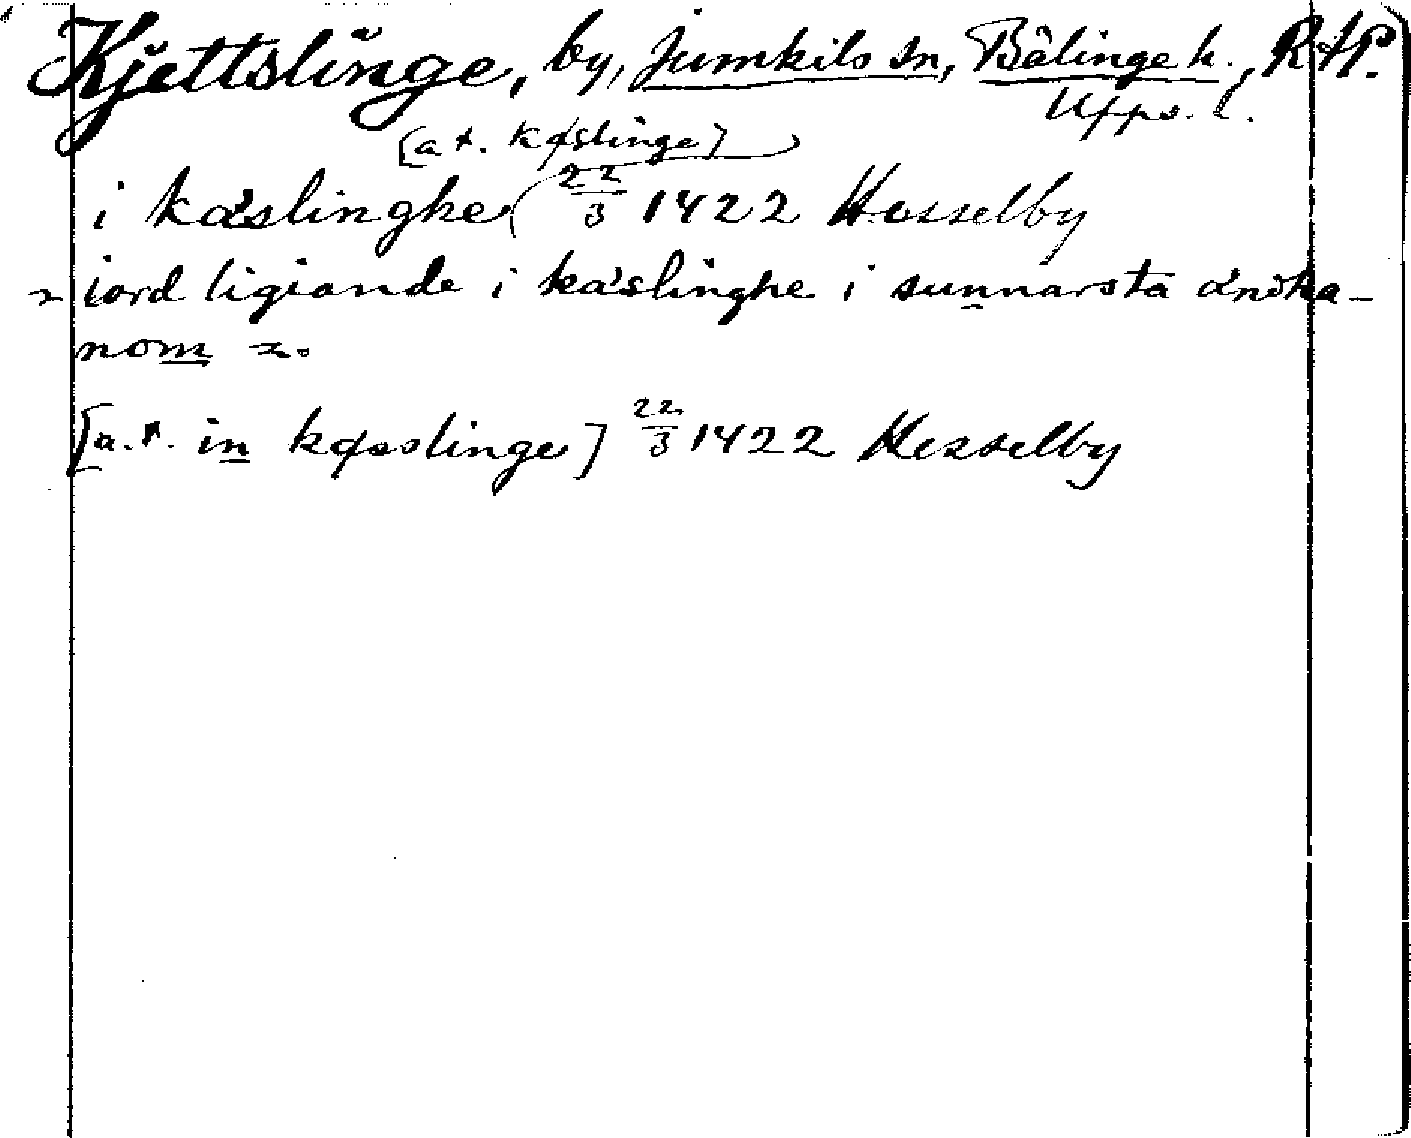 Kjettslinge, by, Jumkils sn, Bälinge h., RAP.
Upps. l.
[a t. kqslinge]
i käslinghe 22/3 1422 Hesselby
~ iord ligiande i käslinghe i sunnarsta ändha-
nom ~.
[a. t. in kqsslinge] 22/3 1422 Hesselby